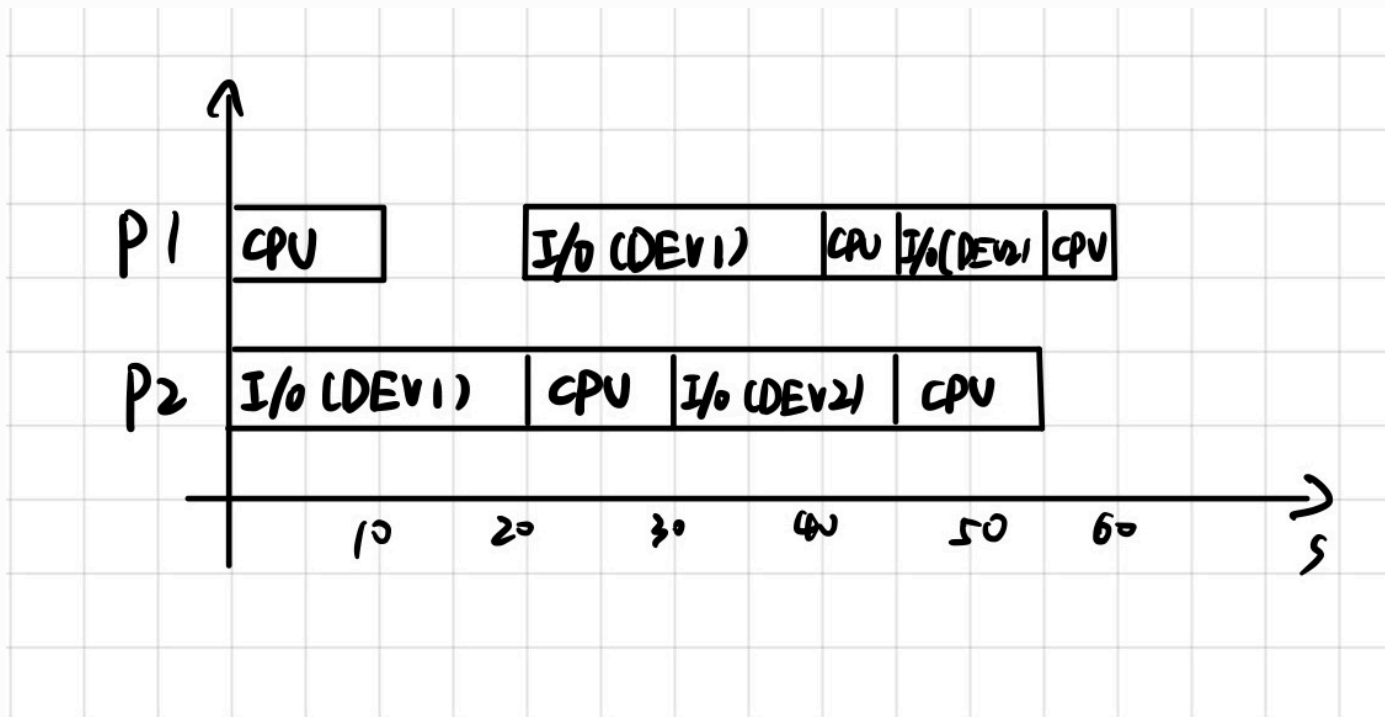 P1 CPU I/O (DEV1) CPU I/O(DEV2) CPU
P2 I/O (DEV1) CPU I/O (DEV2) CPU
10 20 30 40 50 60
S